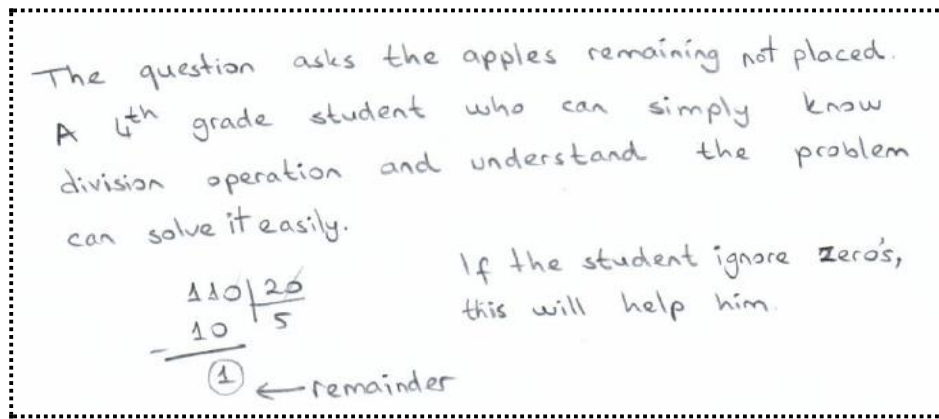 The question asks the apples remaining not placed.
A 4th grade student who can simply know
division operation and understand the problem
can solve it easily.
If the student ignore zero's,
this will help him.
110 | 20
- 10 | 5
1 ← remainder